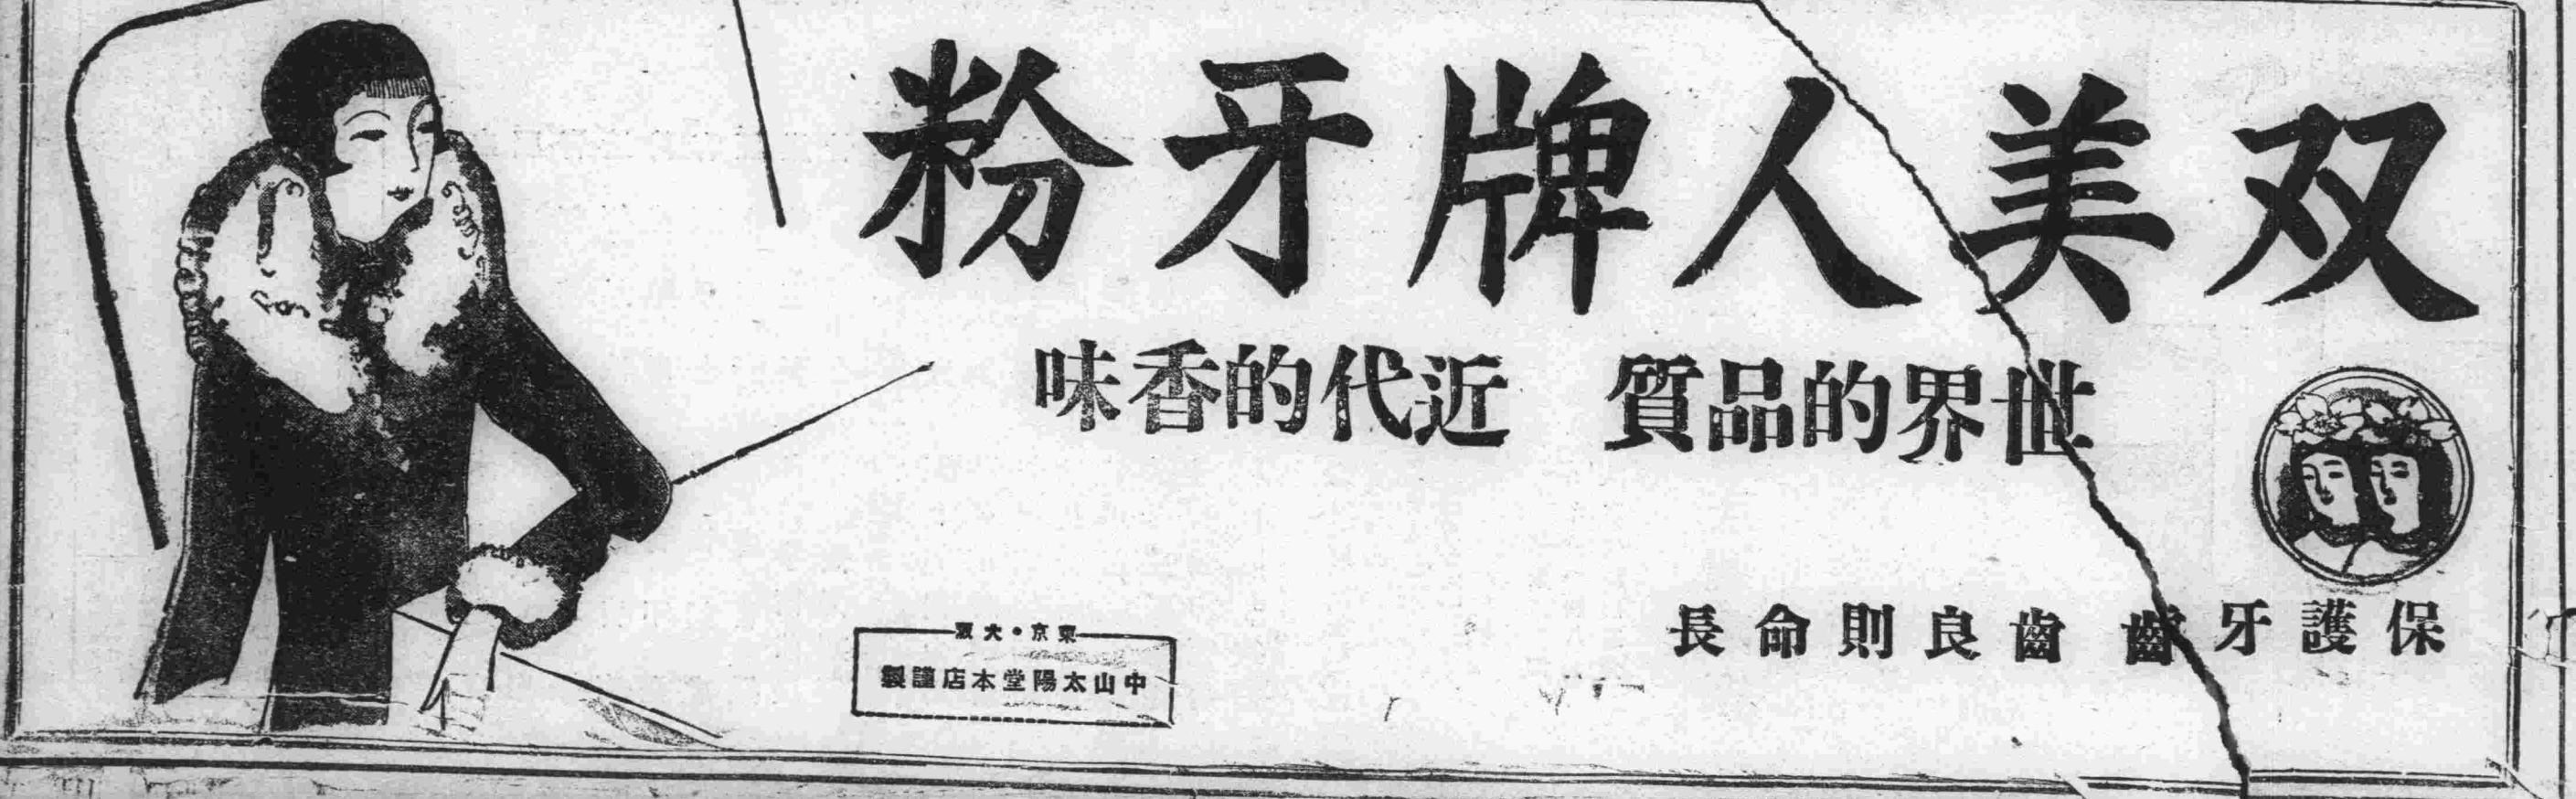 双美人牌牙粉
世界的品質 近代的香味
保護牙齒 齒良則命長
東京・大阪
中山太陽堂本店謹製